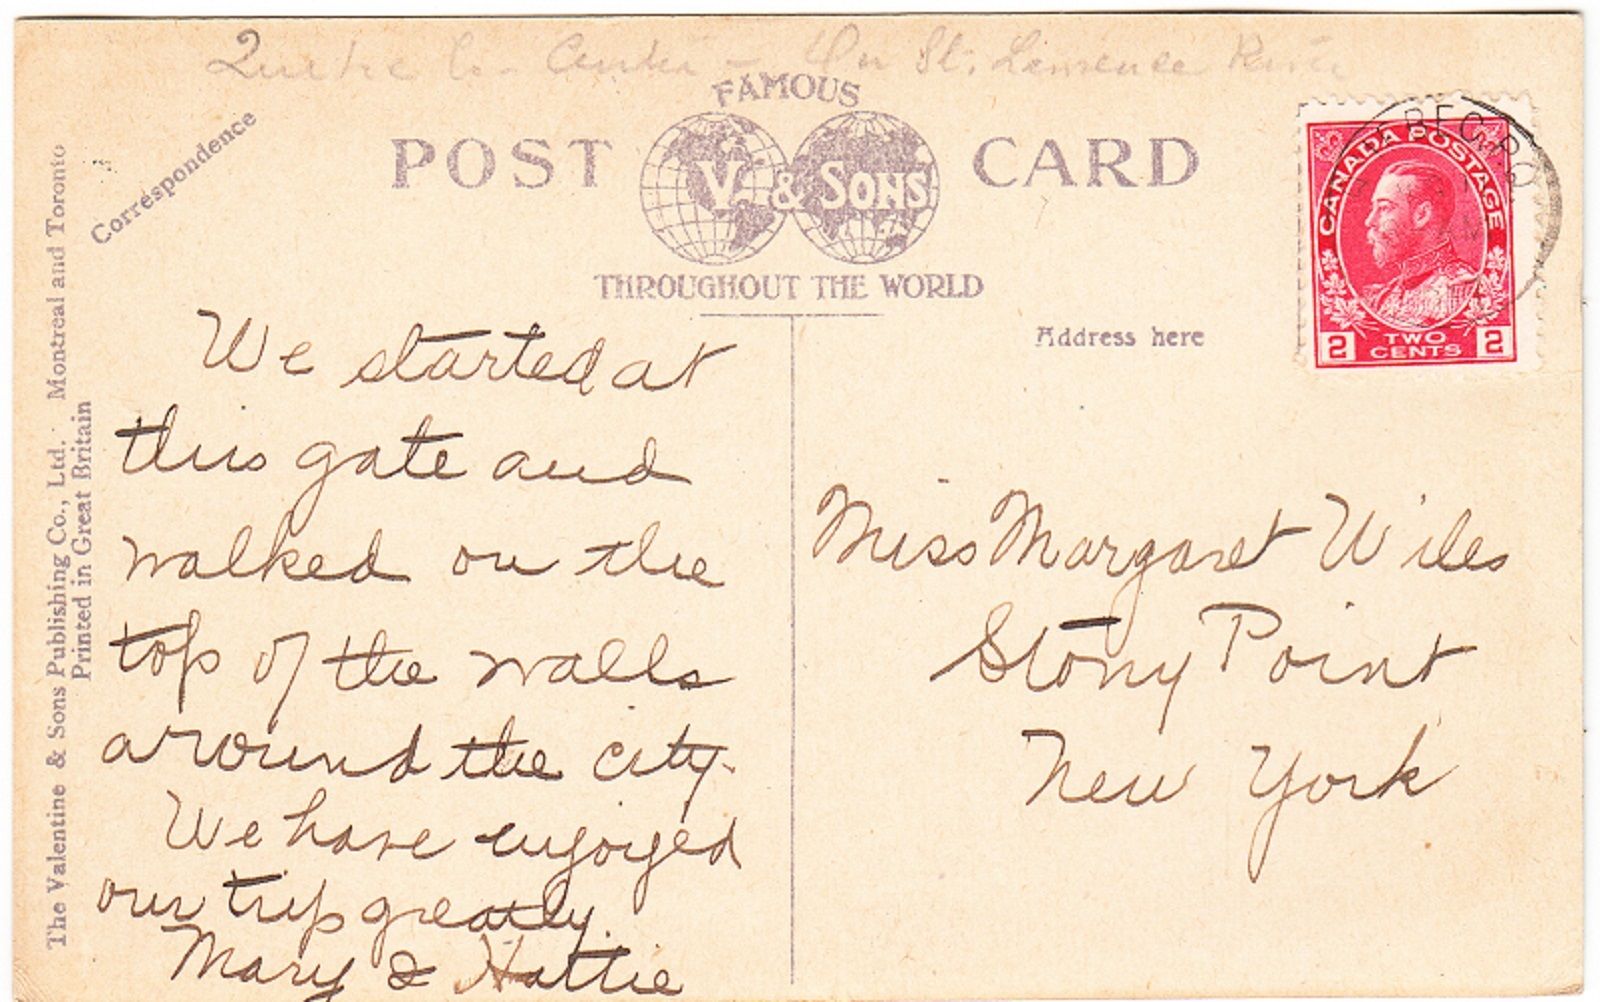 On St. Lawrence
FAMOUS
POST V. & SONS CARD
THROUGHOUT THE WORLD
Correspondence
Address here
CANADA POSTAGE
2 TWO CENTS 2
The Valentine & Sons Publishing Co., Ltd. Montreal and Toronto
Printed in Great Britain
We started at
this gate and
walked on the
top of the walls
around the city.
We have enjoyed
our trip greatly.
Mary & Hattie
Miss Margaret Wiles
Stony Point
New York